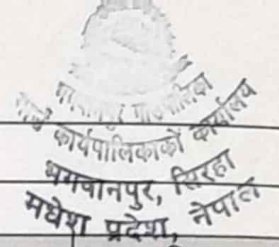 गाउँ कार्यपालिकाको कार्यालय
भगवानपुर, सिरहा
मधेश प्रदेश, नेपाल